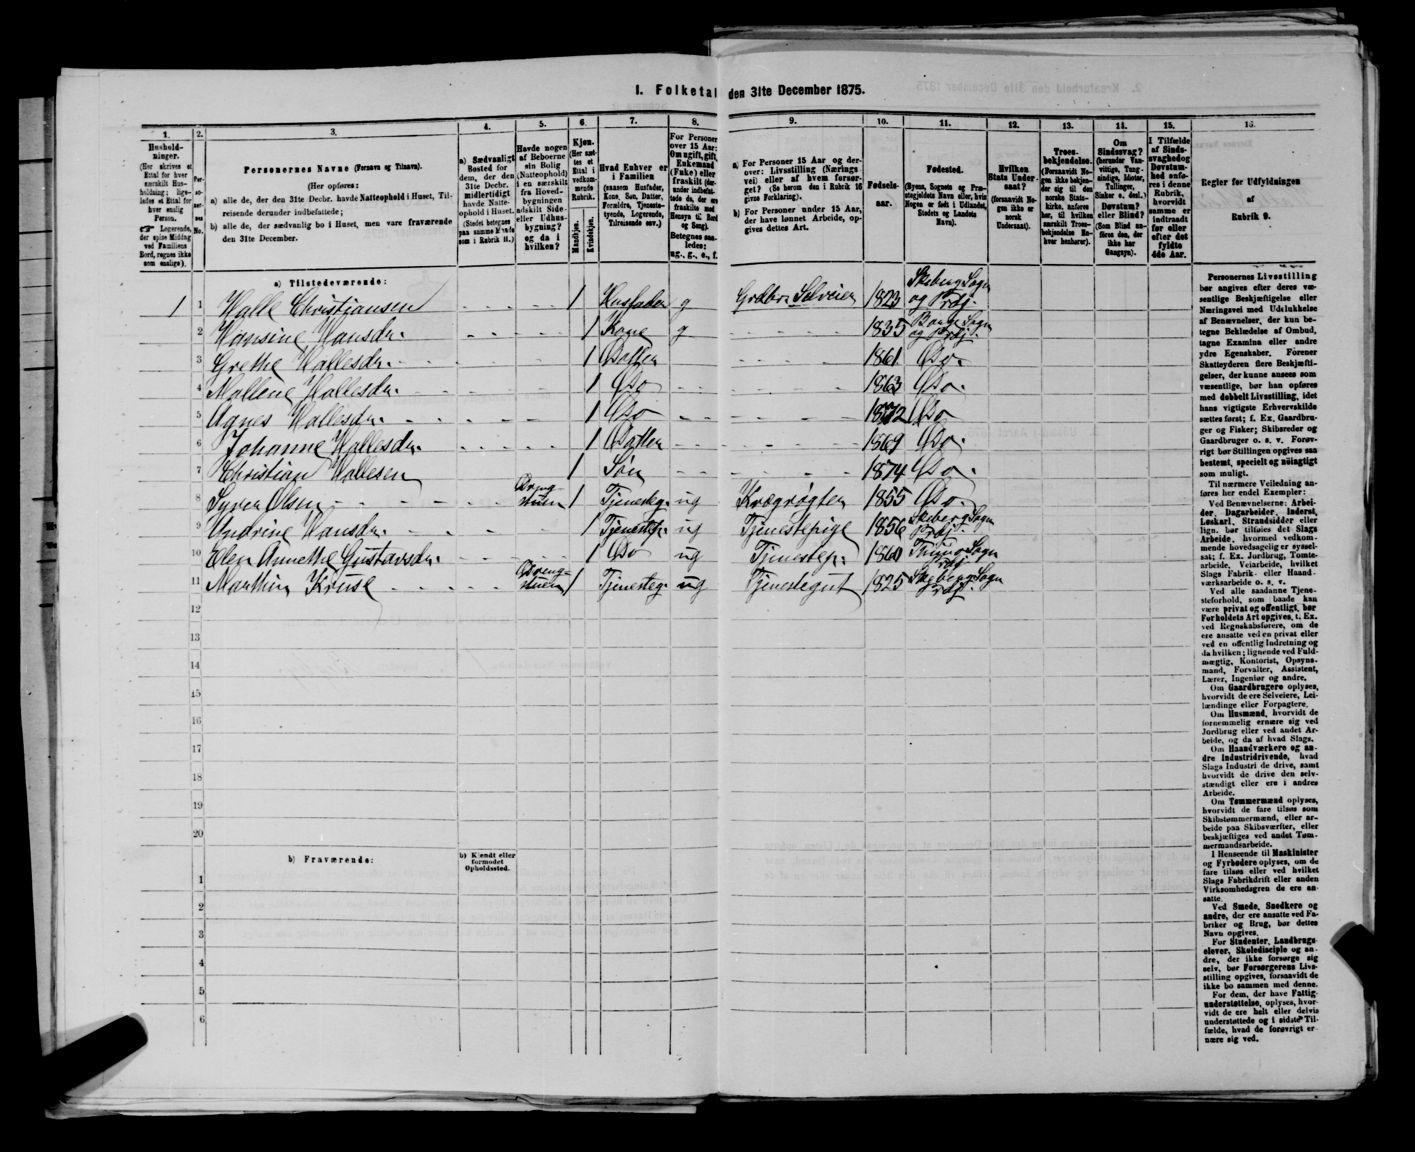 I. Folketal den 31te December 1875.
1. 2. 3. 4. 5. 6. 7. 8. 9. 10. 11. 12. 13. 14. 15. 16.
Hushold-
ninger.
(Her skrives et
Ettal for hver
særskilt Hus-
holdning; lige-
ledes et Ettal for
hver enslig
Person.
☞ Logerende,
der spise Middag
ved Familiens
Bord, regnes ikke
som enslige).
Per-
so-
ner-
nes
No.
Personernes Navne (Fornavn og Tilnavn).
(Her opføres:
a) alle de, der den 31te Decbr. havde Natteophold i Huset, Til-
reisende derunder indbefattede;
b) alle de, der sædvanlig bo i Huset, men vare fraværende
den 31te December.
a) Sædvanligt
Bosted for
dem, der den
31te Decbr.
midlertidigt
havde Natte-
ophold i Huset.
(Stedet betegnes
paa samme Maade
som i Rubrik 11.)
Havde nogen
af Beboerne
sin Bolig
(Natteophold)
i en særskilt
fra Hoved-
bygningen
adskilt Side-
eller Udhus-
bygning?
og da i
hvilken?
Kjøn.
(Her sæt-
tes et
Ettal i
vedkom-
mende
Rubrik.
Mandkjøn. Kvindekjøn.
Hvad Enhver er
i Familien
(saasom Husfader,
Kone, Søn, Datter,
Forældre, Tjeneste-
tyende, Logerende,
Tilreisende osv.)
For Personer
over 15 Aar:
Om ugift, gift,
Enkemand
(Enke) eller
fraskilt (der-
under indbefat-
tede de, der ere
fraskilte med
Hensyn til Bord
og Seng).
Betegnes saa-
ledes:
ug., g., e., f.
a) For Personer 15 Aar og der-
over: Livsstilling (Nærings-
vei) eller af hvem forsør-
get? (Se herom den i Rubrik 16
givne Forklaring).
b) For Personer under 15 Aar,
der have lønnet Arbeide, op-
gives dettes Art.
Fødsels-
aar.
Fødested.
(Byens, Sognets og Præ-
stegjeldets Navn eller, hvis
Nogen er født i Udlandet,
Stedets og Landets
Navn).
Hvilken
Stats Under-
saat?
(forsaavidt No-
gen ikke er
norsk
Undersaat).
Troes-
bekjendelse.
(Forsaavidt No-
gen ikke bekjen-
der sig til den
norske Stats-
kirke, anføres
her, til hvilken
særskilt Troes-
bekjendelse En-
hver henhører).
Om
Sindssvag?
(herunder Van-
vittige, Tung-
sindige, Idioter,
Tullinger,
Sinker o. desl.)
Døvstum?
eller Blind?
(Som Blind an-
føres den, der
ikke har
Gangsyn).
I Tilfælde
af Sinds-
svaghed og
Døvstum-
hed anfø-
res i denne
Rubrik,
hvorvidt
samme er
indtraadt
før eller
efter det
fyldte
4de Aar.
Regler for Udfyldningen
af
Rubrik 9.
a) Tilstedeværende:
1 1 Halle Christiansen 1 Husfader g Grdbr. Selveier 1823 Skeberg Sogn og Prdj.
2 Hansine Hansdr. 1 Kone g 1835 Borge Sogn og Prdj.
3 Grethe Hallesdr. 1 Datter 1861 Do.
4 Mallene Hallesdr. 1 Do 1863 Do.
5 Agnes Hallesdr. 1 Do 1872 Do
6 Johanne Hallesdr. 1 Datter 1869 Do.
7 Christian Hallesen 1 Søn 1874 Do.
8 Syver Olsen Drengstuen 1 Tjenesteg. ug Kregrøgter 1855 Do
9 Andrine Hansdr. 1 Tjenestep. ug Tjenestepige 1856 Skeberg Sogn Prdj.
10 Elen Annethe Gustavsdr. 1 Do ug Tjenestep. 1860 Thunø Sogn Prdj.
11 Marthin Kruse Drengestuen 1 Tjenesteg. ug Tjenestegut 1825 Skeberg Sogn Prdj.
12
13
14
15
16
17
18
19
20
b) Fraværende: b) Kjendt eller
formodet
Opholdssted.
1
2
3
4
5
6
Personernes Livsstilling
bør angives efter deres væ-
sentlige Beskjæftigelse eller
Næringsvei med Udelukkelse
af Benævnelser, der kun be-
tegne Beklædelse af Ombud,
tagne Examina eller andre
ydre Egenskaber. Forener
Skatteyderen flere Beskjæfti-
gelser, der kunne ansees som
væsentlige, bør han opføres
med dobbelt Livsstilling, idet
hans vigtigste Erhvervskilde
sættes først; f. Ex. Gaardbru-
ger og Fisker; Skibsreder og
Gaardbruger o. s. v. Forøv-
rigt bør Stillingen opgives saa
bestemt, specielt og nøiagtigt
som muligt.
Til nærmere Veiledning an-
føres her endel Exempler:
Ved Benævnelserne: Arbei-
der, Dagarbeider, Inderst,
Løskarl, Strandsidder eller
lign. bør tilføies det Slags
Arbeide, hvormed vedkom-
mende hovedsagelig er syssel-
sat; f. Ex. Jordbrug, Tomte-
arbeide, Veiarbeide, hvilket
Slags Fabrik- eller Haand-
værksarbeide o. s. v.
Ved alle saadanne Tjene-
steforhold, som baade kan
være privat og offentligt, bør
Forholdets Art opgives, t. Ex.
ved Regnskabsførere, om de
ere ansatte ved en privat eller
ved en offentlig Indretning og
da hvilken; lignende ved Fuld-
mægtig, Kontorist, Opsyns-
mand, Forvalter, Assistent,
Lærer, Ingeniør og andre.
Om Gaardbrugere oplyses,
hvorvidt de ere Selveiere, Lei-
lændinge eller Forpagtere.
Om Husmænd, hvorvidt de
fornemmelig ernære sig ved
Jordbrug eller ved andet Ar-
beide, og da af hvad Slags.
Om Haandværkere og an-
dre Industridrivende, hvad
Slags Industri de drive, samt
hvorvidt de drive den selv-
stændigt eller ere i andres
Arbeide.
Om Tømmermænd oplyses,
hvorvidt de fare tilsøs som
Skibstømmermænd, eller ar-
beide paa Skibsværfter, eller
beskjæftiges ved andet Tøm-
mermandsarbeide.
I Henseende til Maskinister
og Fyrbødere oplyses, om de
fare tilsøs eller ved hvilket
Slags Fabrikdrift eller anden
Virksomhedsgren de ere an-
satte.
Ved Smede, Snedkere og
andre, der ere ansatte ved Fa-
briker og Brug, bør dettes
Navn opgives.
For Studenter, Landbrugs-
elever, Skoledisciple og an-
dre, der ikke forsørge sig
selv, bør Forsørgerens Livs-
stilling opgives, forsaavidt de
ikke bo sammen med denne.
For dem, der have Fattig-
understøttelse, oplyses, hvor-
vidt de ere helt eller delvis
understøttede og i sidste Til-
fælde, hvad de forøvrigt er-
nære sig ved.